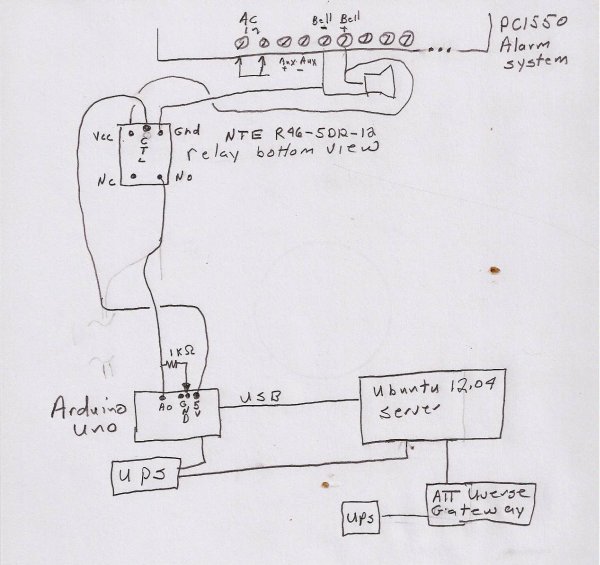 AC
1 2
Bell
-
Bell
+
PC1550
Alarm
system
Aux
+
Aux
-
...
Vcc
C
T
L
Gnd
NTE R46-5D12-12
relay bottom view
NC
NO
1KΩ
Arduino
uno
A0
G
N
D
5
V
USB
Ubuntu 12.04
server
UPS
ATT Uverse
Gateway
UPS